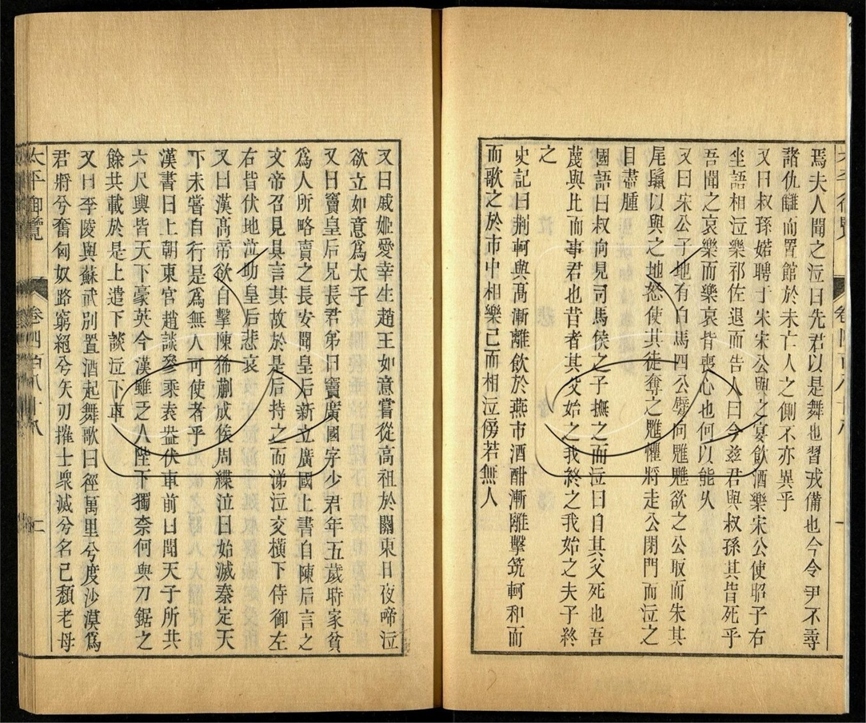 焉夫人聞之泣曰先君以是舞也習戎備也今令尹不尋
諸仇讎而置館於未亡人之側不亦異乎
又曰叔孫婼聘于宋宋公與之宴飲酒樂宋公使昭子右
坐語相泣樂祁佐退而告人曰今兹君與叔孫其皆死乎
吾聞之哀樂而樂哀皆喪心也何以能久
又曰宋公子地有白馬四公嬖向魋魋欲之公取而朱其
尾鬛以與之地怒使其徒奪之魋懼將走公閉門而泣之
目盡腫
國語曰叔向見司馬侯之子撫之而泣曰自其父死也吾
蔑與比而事君也昔者其父始之我終之我始之夫子終
之
史記曰荆軻與高漸離飲於燕市酒酣漸離擊筑軻和而
而歌之於市中相樂已而相泣傍若無人
又曰戚姬愛幸生趙王如意嘗從高祖於關東日夜啼泣
欲立如意爲太子
又曰竇皇后兄長君弟曰竇廣國字少君年五歲時家貧
爲人所略賣之長安聞皇后新立廣國上書自陳后言之
文帝召見具言其故於是后持之而涕泣交橫下侍御左
右皆伏地泣助皇后悲哀
又曰漢高帝欲自擊陳豨蒯成侯周緤泣曰始滅秦定天
下未嘗自行是爲無人可使者乎
漢書曰上朝東宫趙談參乘袁盎伏車前曰聞天子所共
六尺輿皆天下豪英今漢雖乏人陛下獨柰何與刀鋸之
餘共載於是上遣下談泣下車
又曰李陵與蘇武别置酒起舞歌曰徑萬里兮度沙漠爲
君將兮奮匈奴路窮絕兮矢刃摧士衆滅兮名已頽老母
太平御覽 卷四百八十八 一